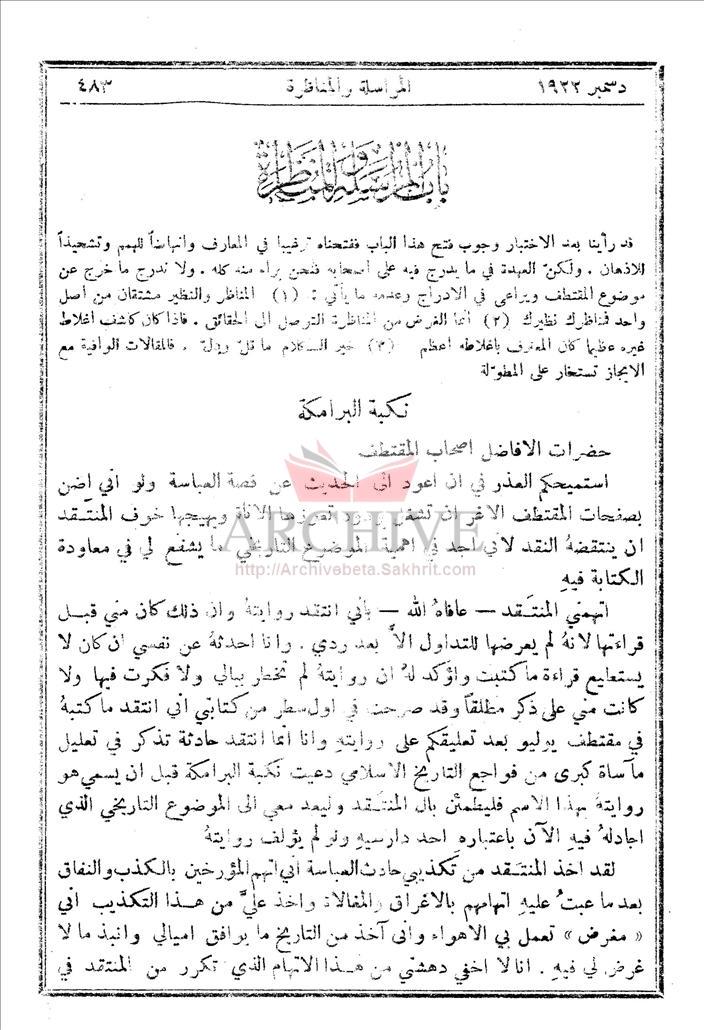 دسمبر ١٩٢٢ المراسلة والمناظرة ٤٨٣
باب المراسلة والمناظرة
قد رأينا بعد الاختبار وجوب فتح هذا الباب ففتحناه ترغيبا في المعارف وانهاضاً للهمم وتشحيذاً
للاذهان . ولكنّ العهدة في ما يدرج فيه على اصحابه فنحن براء منه كله . ولا ندرج ما خرج عن
موضوع المقتطف ويراعى في الادراج وعدمه ما يأتي : (١) المناظر والنظير مشتقان من اصل
واحد فمناظرك نظيرك (٢) انما الغرض من المناظرة التوصل الى الحقائق . فاذا كان كاشف اغلاط
غيره عظيما كان المعترف باغلاطه اعظم (٣) خير الكلام ما قلّ ودلّ . فالمقالات الوافية مع
الايجاز تستخار على المطوّلة
نكبة البرامكة
حضرات الافاضل اصحاب المقتطف
استميحكم العذر في ان اعود الى الحديث عن قصة العباسة ولو اني اضن
بصفحات المقتطف الاغر ان تشغل بردود تعوزها الاناة ويهيجها خوف المنتقد
ان ينتقضهُ النقد لاني اجد في اهمية الموضوع التاريخي ما يشفع لي في معاودة
الكتابة فيهِ
اتهمني المنتقد — عافاهُ الله — باني انتقد روايتهُ وان ذلك كان مني قبل
قراءتها لانهُ لم يعرضها للتداول الاَّ بعد ردي . وانا احدثهُ عن نفسي ان كان لا
يستطيع قراءة ما كتبت واؤكد لهُ ان روايتهُ لم تخطر ببالي ولا فكرت فيها ولا
كانت مني على ذكر مطلقاً وقد صرحت في اول سطر من كتابتي اني انتقد ما كتبهُ
في مقتطف يوليو بعد تعليقكم على روايتهِ وانا انما انتقد حادثة تذكر في تعليل
مأساة كبرى من فواجع التاريخ الاسلامي دعيت نكبة البرامكة قبل ان يسمي هو
روايتهُ بهذا الاسم فليطمئن بال المنتقد وليعد معي الى الموضوع التاريخي الذي
اجادلهُ فيهِ الآن باعتباره احد دارسيهِ ولو لم يؤلف روايتهُ
لقد اخذ المنتقد من تكذيبي حادث العباسة اني اتهم المؤرخين بالكذب والنفاق
بعد ما عبتُ عليهِ اتهامهم بالاغراق والمغالاة واخذ عليَّ من هذا التكذيب اني
« مغرض » تعمل بي الاهواء واني آخذ من التاريخ ما يوافق اميالي وانبذ ما لا
غرض لي فيهِ . انا لا اخفي دهشتي من هذا الاتهام الذي تكرر من المنتقد في
ARCHIVE
http://Archivebeta.Sakhrit.com